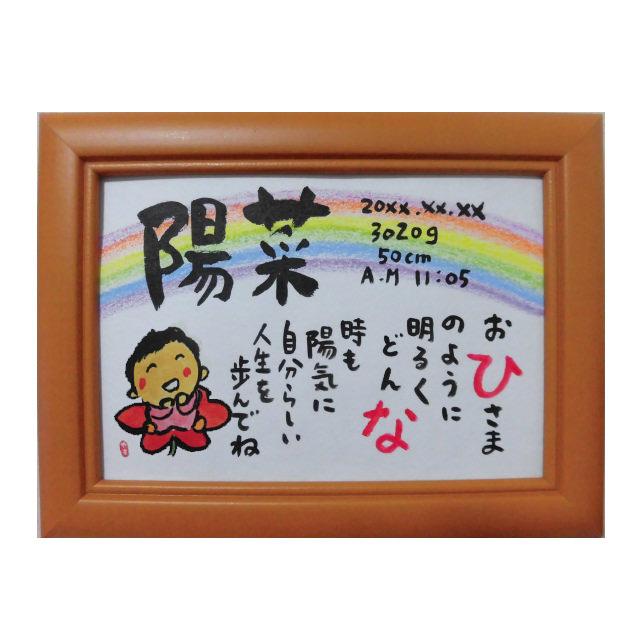 陽菜
20xx.xx.xx
3020g
50cm
A.M 11:05
おひさま
のように
明るく
どんな
時も
陽気に
自分らしい
人生を
歩んでね